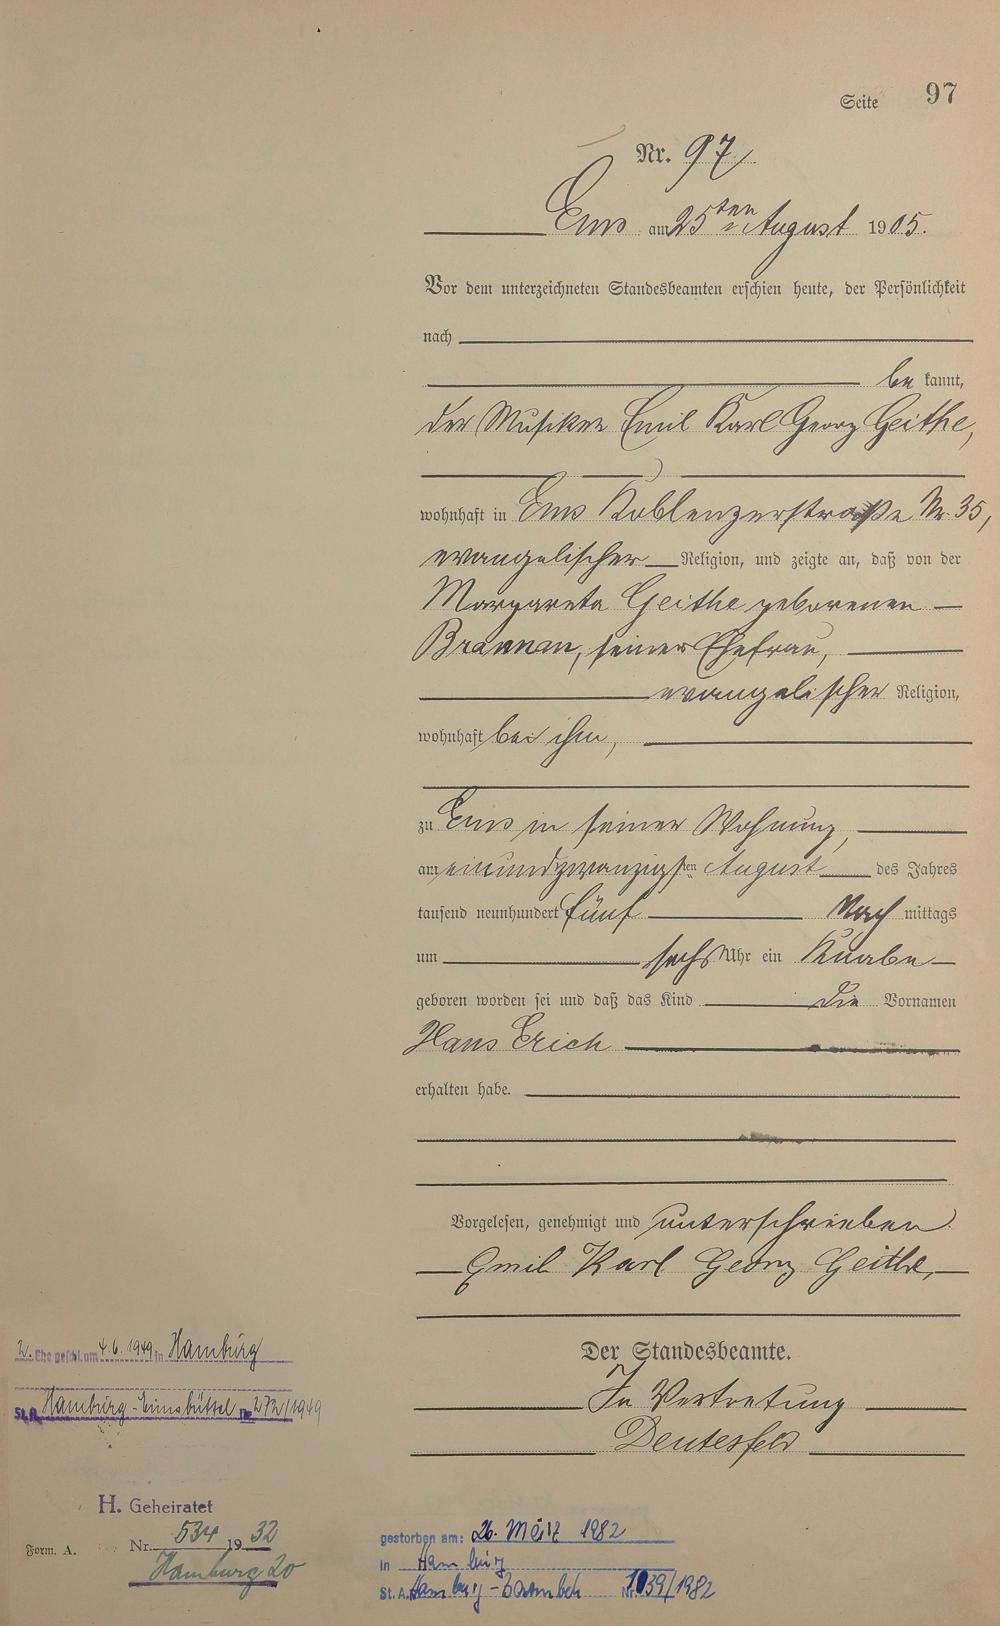 Seite 97
Nr. 97
Ems am 25ten August 1905.
Vor dem unterzeichneten Standesbeamten erschien heute, der Persönlichkeit
nach
be kannt,
der Musiker Emil Karl Georg Geithe,
wohnhaft in Ems Koblenzerstraße Nr. 35,
evangelischer Religion, und zeigte an, daß von der
Margareta Geithe geborenen
Brannan, seiner Ehefrau,
evangelischer Religion,
wohnhaft bei ihm,
zu Ems in seiner Wohnung,
am einundzwanzigsten August des Jahres
tausend neunhundert fünf Nach mittags
um sechs Uhr ein Knabe
geboren worden sei und daß das Kind die Vornamen
Hans Erich
erhalten habe.
Vorgelesen, genehmigt und unterschrieben
Emil Karl Georg Geithe,
Der Standesbeamte.
In Vertretung
Deutesfeld
2. Ehe geschl. am 4.6.1949 in Hamburg
St.A. Hamburg-Eimsbüttel Nr. 272/1949
H. Geheiratet
Nr. 534 1932
Hamburg 20
Form. A.
gestorben am: 26. März 1982
in Hamburg
St.A. Hamburg-Barmbek Nr. 1039/1982